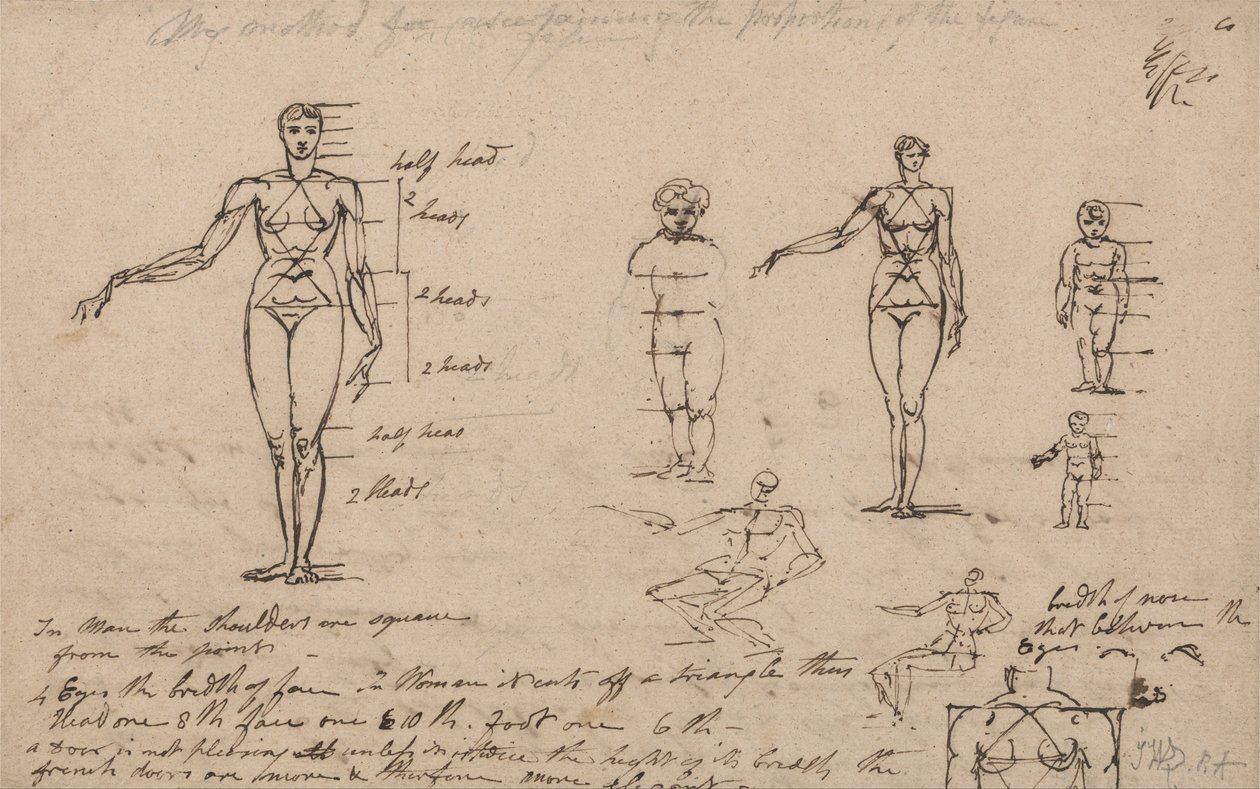 My method for ascertaining the proportions of the figure
half head
2
heads
2 heads
2 heads
half head
2 Heads
In Man the Shoulders are square
from the points –
4 Eyes the bredth of face in Woman it cuts off a triangle thus
Head one 8th face one 10th. foot one 6th –
a Door is not pleasing unless in twice the height of its bredth the
french doors are more & therfore more elegant –
bredth of nose
that between the
Eyes